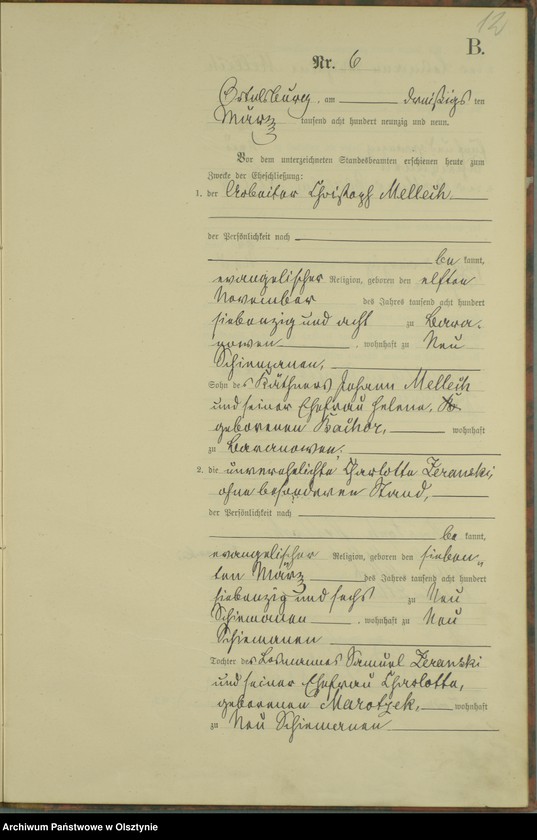 12
B.
Nr. 6
Ortelsburg, am dreißigsten
März tausend acht hundert neunzig und neun.
Vor dem unterzeichneten Standesbeamten erschienen heute zum
Zwecke der Eheschließung:
1. der Arbeiter Christoph Mellech
der Persönlichkeit nach
be kannt,
evangelischer Religion, geboren den elften
November des Jahres tausend acht hundert
siebenzig und acht zu Bara-
nowen, wohnhaft zu Neu
Schiemanen,
Sohn des Käthners Johann Mellech
und seiner Ehefrau Helene,
geborenen wohnhaft
zu Baranowen.
2. die unverehelichte Charlotte Zeranski,
ohne besonderen Stand,
der Persönlichkeit nach
be kannt,
evangelischer Religion, geboren den sieben-
ten März des Jahres tausend acht hundert
siebenzig und sechs zu Neu
Schiemanen, wohnhaft zu Neu
Schiemanen
Tochter des Losmannes Samuel Zeranski
und seiner Ehefrau Charlotte,
geborenen Marotzek, wohnhaft
zu Neu Schiemanen.
Archiwum Państwowe w Olsztynie